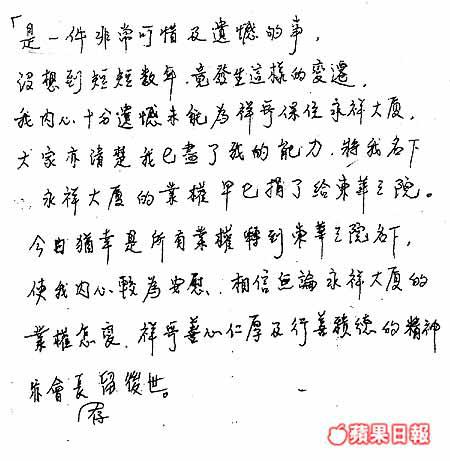 「是一件非常可惜及遺憾的事，
沒想到短短數年，竟發生這樣的變遷，
我內心十分遺憾未能為祥哥保住永祥大廈，
大家亦清楚我已盡了我的能力，將我名下
永祥大廈的業權早已捐了給東華三院。
今日猶幸是所有業權轉到東華三院名下，
使我內心較為安慰，相信無論永祥大廈的
業權怎變，祥哥善心仁厚及行善積德的精神
亦會長留後世。
存
蘋果日報